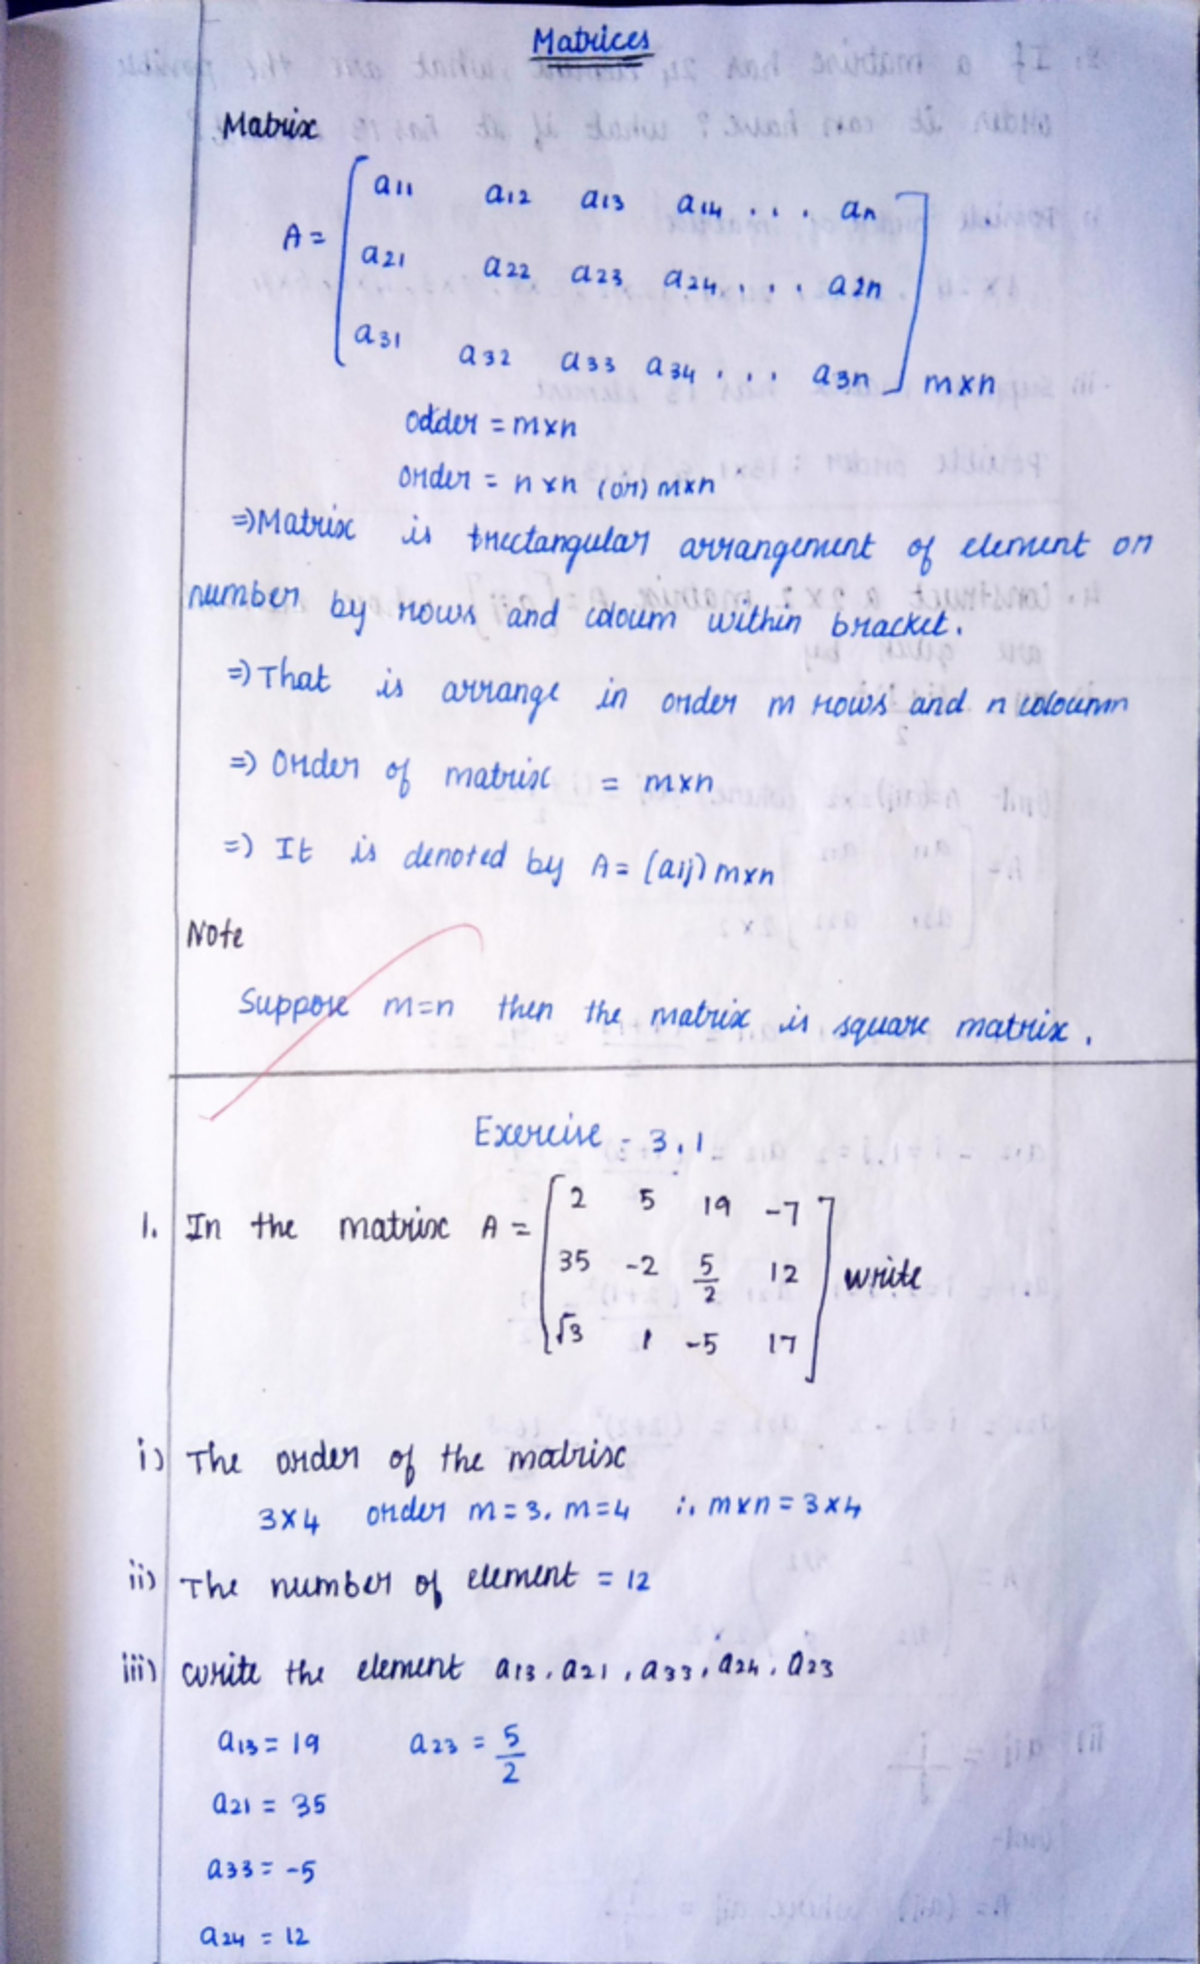 Matrices
Matrix
A = [ a11 a12 a13 a14 . . . an
a21 a22 a23 a24 . . . a2n
a31 a32 a33 a34 . . . a3n ] m×n
odder = m×n
order = n×n (or) m×n
⇒ Matrix is trectangular arrangement of element or
number by rows and coloum within bracket.
⇒ That is arrange in order m rows and n coloumn
⇒ Order of matrix = m×n
⇒ It is denoted by A = (aij) m×n
Note
Suppose m=n then the matrix is square matrix.
Exercise - 3.1
1. In the matrix A = [ 2 5 19 -7
35 -2 5/2 12
√3 1 -5 17 ] write
i) The order of the matrix
3×4 order m=3. m=4 ∴ m×n = 3×4
ii) The number of element = 12
iii) write the element a13, a21, a33, a24, a23
a13 = 19 a23 = 5/2
a21 = 35
a33 = -5
a24 = 12